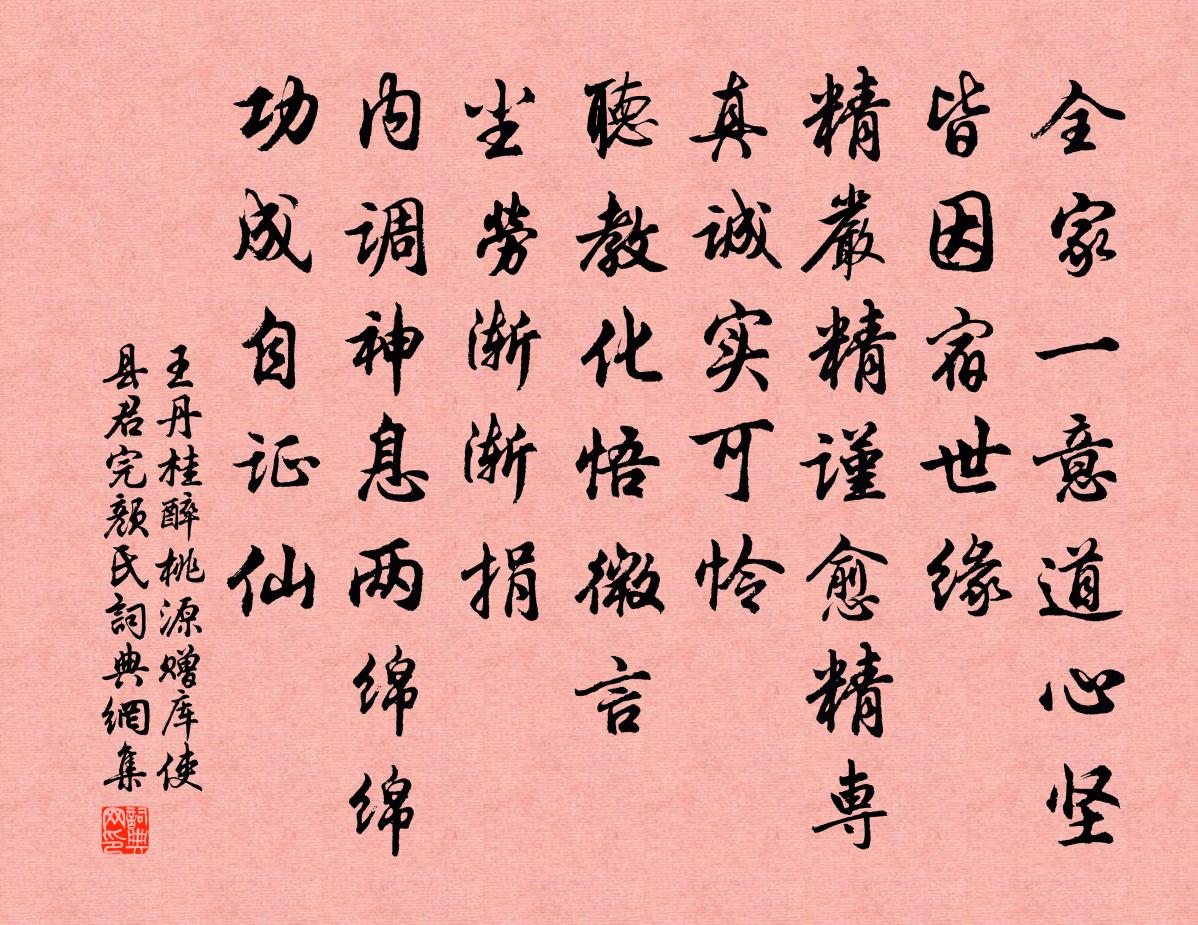 全家一意道心坚
皆因宿世缘
精嚴精謹愈精専
真诚实可怜
聽教化悟微言
尘劳渐渐捐
内调神息两绵绵
功成自证仙
王丹桂醉桃源赠库使
县君完颜氏詞典網集
詞典网印